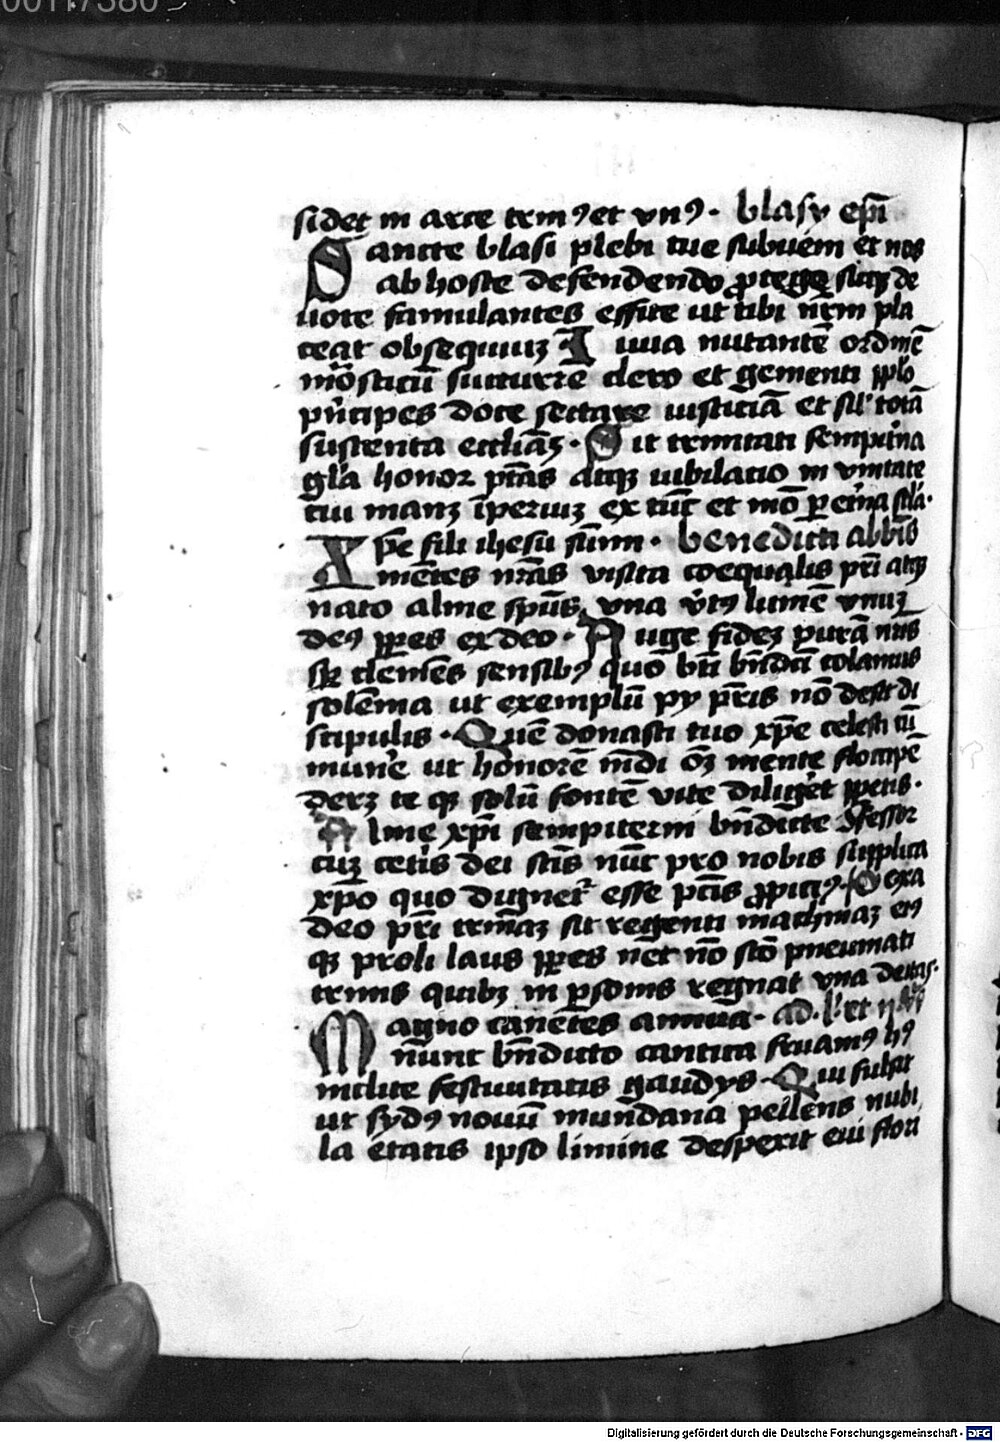 0017380
sidet in arce trinꝰ et vnꝰ · blasy ep̄i
Sancte blasi plebi tue subueni et nos
ab hoste defendendo ꝓtege sicqꝫ de
uote famulantes effice ut tibi nr̄m pla
ceat obsequiuꝫ Iuua nutantē ordinē
mōsticū succurre clero et gementi ꝑplo
pn̄cipes doce sectare iusticiā et sil' totā
sustenta eccliaꝫ · Sit trinitati sempit'na
gl'a honor ptās atqꝫ iubilatio in vnitate
cui manꝫ īperiuꝫ ex tūc et mō ꝑ et'na scl'a ·
Xp̄e fili ihesu sūmi · benedicti abbīs
mētes nr̄as visita coequalis pr̄i atqꝫ
nato alme sp̄us vna v't'ꝰ lumē vnuꝫ
deꝰ ꝑpes ex deo · Auge fideꝫ purā nr̄is
sꝑ clemēs sensibꝰ quo bt̄i bn̄dicti colamus
solēnia ut exemplū py pr̄is nō desit di
scipulis · Quē donasti tuo xp̄e celesti cū
mun'e ut honorē mūdi oꝫ mente
derꝫ te qꝫ solū fontē vite diliget ꝑpetis ·
Alme xp̄i sempiterni bn̄dicte ꝯfessor
cuꝫ cet'is dei sc̄is nūc pro nobis supplica
xp̄o quo dignet' esse pctīs ꝓpiciꝰ · Sexa
deo pr̄i sit regenti machinaꝫ eiꝰ
qꝫ proli laus ꝑpes nec nō sc̄o pneumati
trinus quibꝫ in ꝑsonis regnat vna deitas ·
Magno canētes annua · ad · l' · et
nūnc bn̄dicto cantica fruamꝰ hꝰ
inclite festiuitatis gaudys · Qui fulsit
ut sydꝰ nouū mundana pellens nubi
la etatis ipso limine despexit eui flori
Digitalisierung gefördert durch die Deutsche Forschungsgemeinschaft - DFG